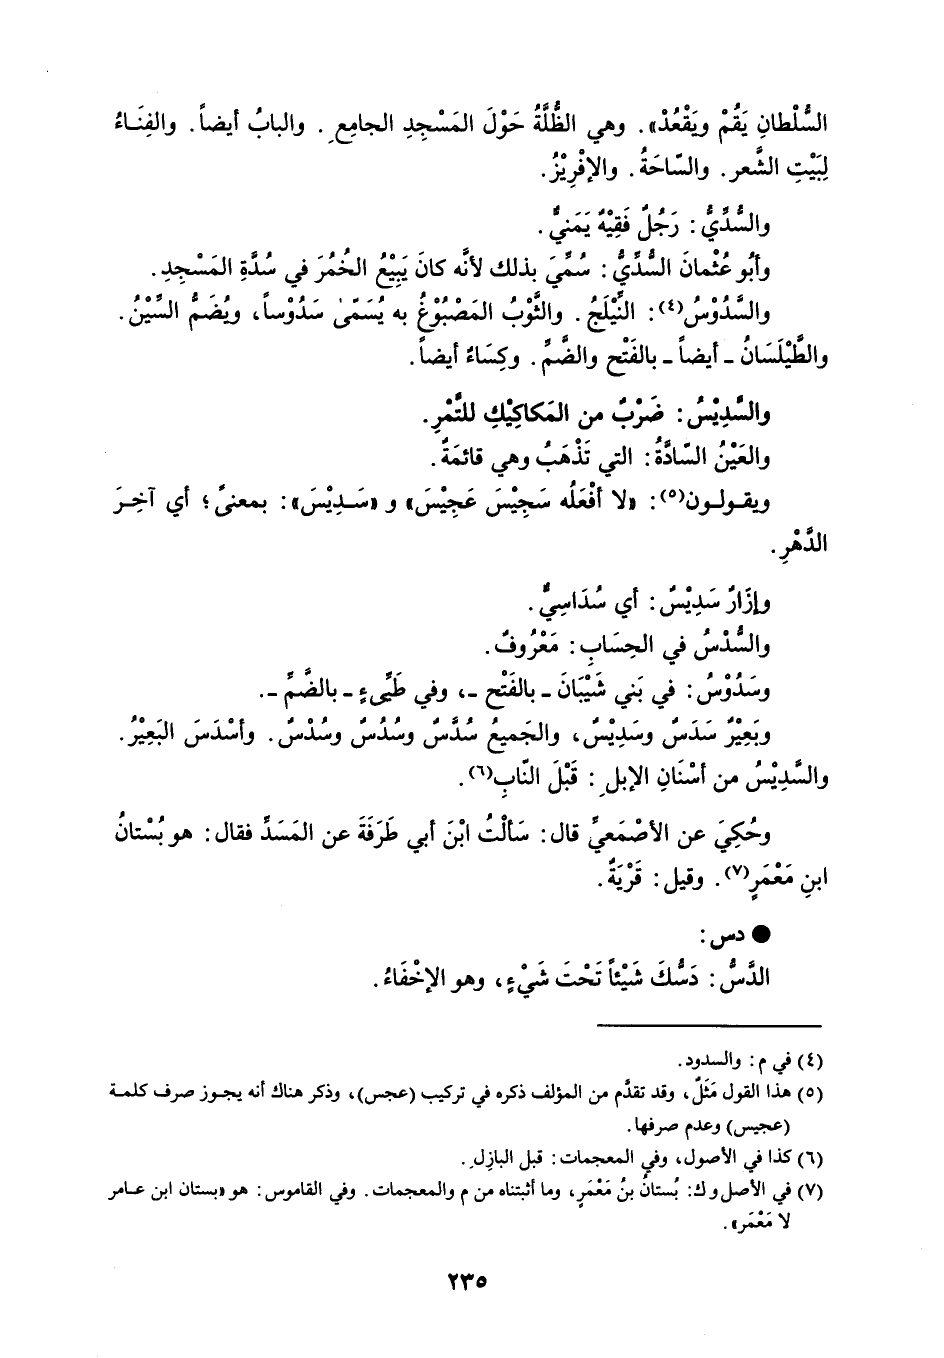 السُّلْطانِ يَقُمْ ويَقْعُدْ». وهي الظُّلَّةُ حَوْلَ المَسْجِدِ الجامِعِ. والبابُ أيضاً. والفِنَاءُ
لِبَيْتِ الشَّعر. والسّاحَةُ. والإفْرِيْزُ.
والسُّدِّيُّ: رَجُلٌ فَقِيْهٌ يَمَنيٌّ.
وأبُو عُثْمانَ السُّدِّيُّ: سُمِّيَ بذلك لأنَّه كانَ يَبِيْعُ الخُمُرَ في سُدَّةِ المَسْجِدِ.
والسَّدُوْسُ(٤): النِّيْلَجُ. والثَّوْبُ المَصْبُوْغُ به يُسَمّىٰ سَدُوْساً، ويُضَمُّ السِّيْنُ.
والطَّيْلَسَانُ ـ أيضاً ـ بالفَتْح والضَّمِّ. وكِسَاءٌ أيضاً.
والسَّدِيْسُ: ضَرْبٌ من المَكاكِيْكِ للتَّمْرِ.
والعَيْنُ السّادَّةُ: التي تَذْهَبُ وهي قائمَةٌ.
ويقولون(٥): «لا أفْعَلُه سَجِيْسَ عَجِيْسَ» و «سَدِيْسَ»: بمعنىً؛ أي آخِرَ
الدَّهْرِ.
وإزَارٌ سَدِيْسٌ: أي سُدَاسِيٌّ.
والسُّدْسُ في الحِسَابِ: مَعْرُوفٌ.
وسَدُوْسُ: في بَني شَيْبَانَ ـ بالفَتْح ـ، وفي طَيِّىءٍ ـ بالضَّمِّ ـ.
وبَعِيْرٌ سَدَسٌ وسَدِيْسٌ، والجَميعُ سُدَّسٌ وسُدُسٌ وسُدْسٌ. وأسْدَسَ البَعِيْرُ.
والسَّدِيْسُ من أسْنَانِ الإبلِ: قَبْلَ النّابِ(٦).
وحُكِيَ عن الأصْمَعيِّ قال: سَألْتُ ابْنَ أبي طَرَفَةَ عن المَسَدِّ فقال: هو بُسْتانُ
ابنِ مَعْمَرٍ(٧). وقيل: قَرْيَةٌ.
● دس:
الدَّسُّ: دَسُّكَ شَيْئاً تَحْتَ شَيْءٍ، وهو الإخْفَاءُ.
(٤) في م: والسدود.
(٥) هذا القول مَثَلٌ، وقد تقدَّم من المؤلف ذكره في تركيب (عجس)، وذكر هناك أنه يجوز صرف كلمة
(عجيس) وعدم صرفها.
(٦) كذا في الأصول، وفي المعجمات: قبل البازِلِ.
(٧) في الأصل و ك: بُستانُ بنُ مَعْمَرٍ، وما أثبتناه من م والمعجمات. وفي القاموس: هو «بستان ابن عامر
لا مَعْمَر».
٢٣٥